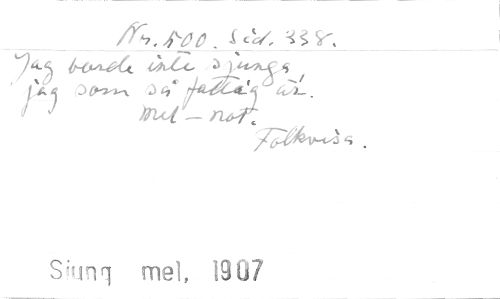 Nr. 500. Sid. 338.
Jag borde inte sjunga
jag som så fattig är.
mel-not.
Folkvisa.
Sjung mel, 1907